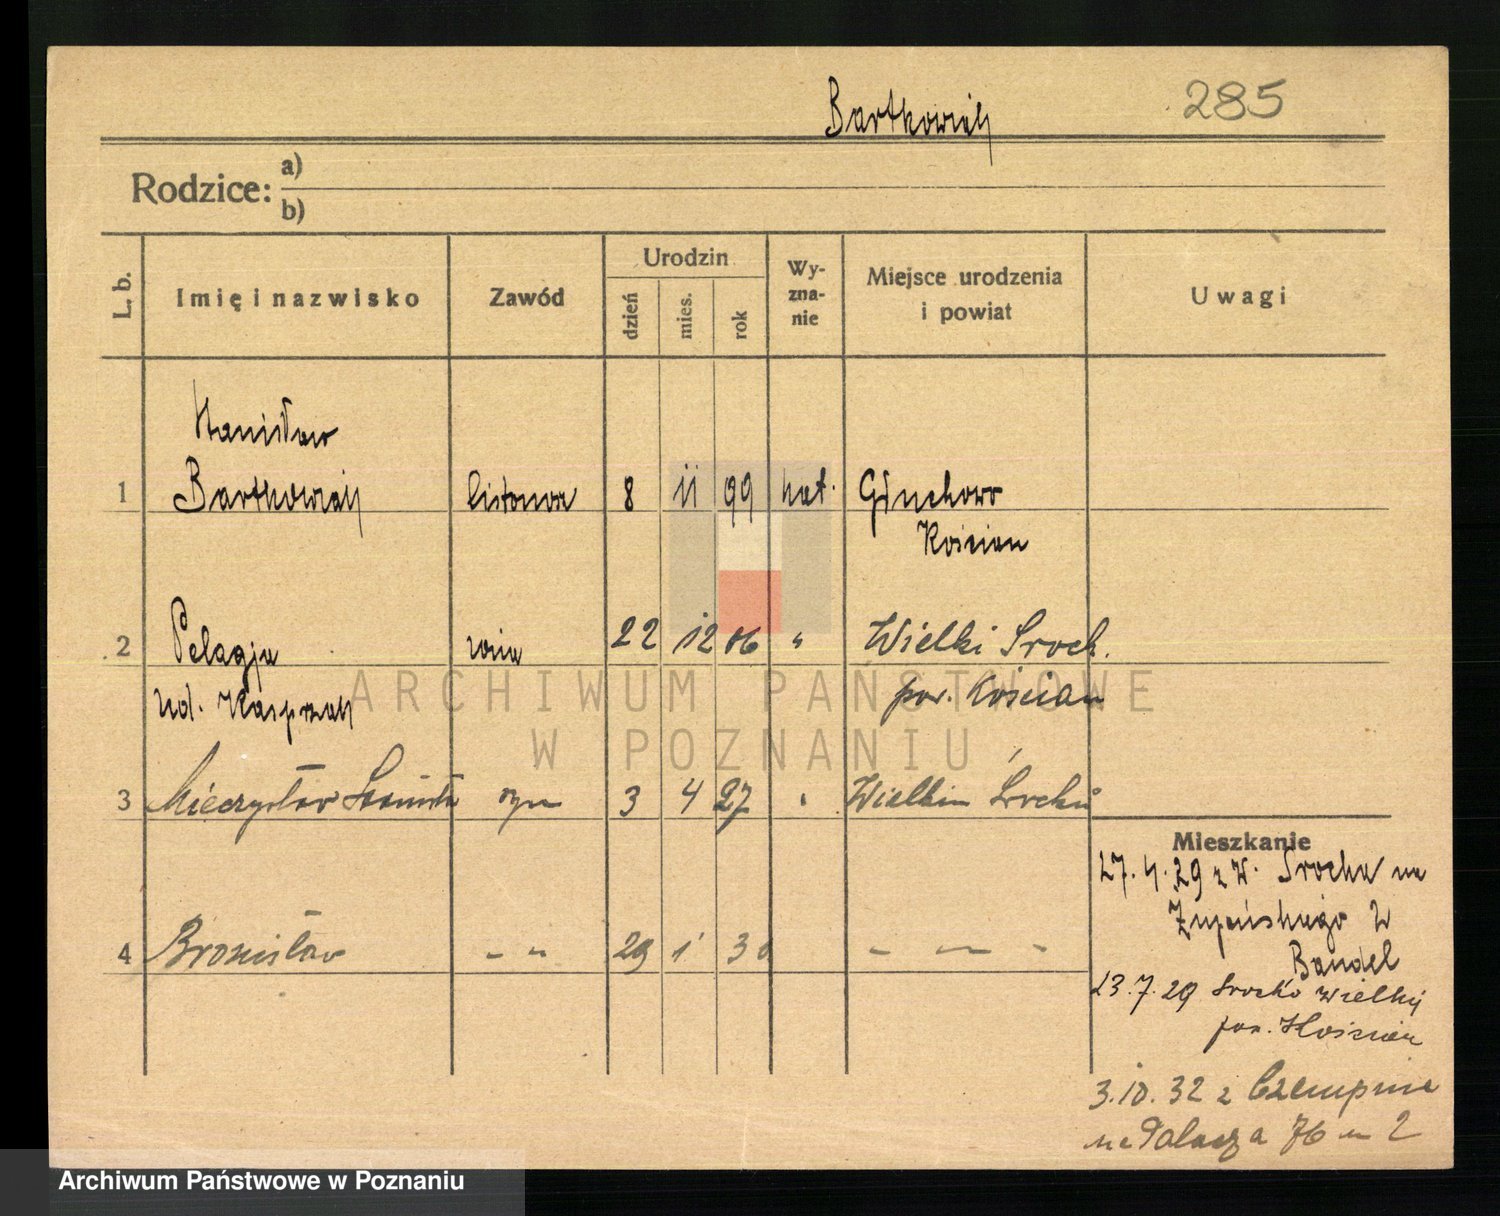 Bartkowiak 285
Rodzice: a)
b)
L. b. Imię i nazwisko Zawód Urodzin dzień mies. rok Wy-zna-nie Miejsce urodzenia i powiat Uwagi
Stanisław
1 Bartkowiak listonosz 8 11 99 kat. Głuchowo
Kościan
2 Pelagja żona 22 12 06 " Wielki Sroch.
ud. Kasprzak pow. Kościan
3 Mieczysław syn 3 4 27 " Wielkim Srocku
Mieszkanie
27.4.29 z W. Srocka na
Żupańskiego 2
Bandel
4 Bronisław – " – 29 1 30 – " –
13.7.29 Srocko Wielkij
pow. Kościan
3.10.32 z Czempinia
na Palacza 76 m 2
ARCHIWUM PAŃSTWOWE
W POZNANIU
Archiwum Państwowe w Poznaniu